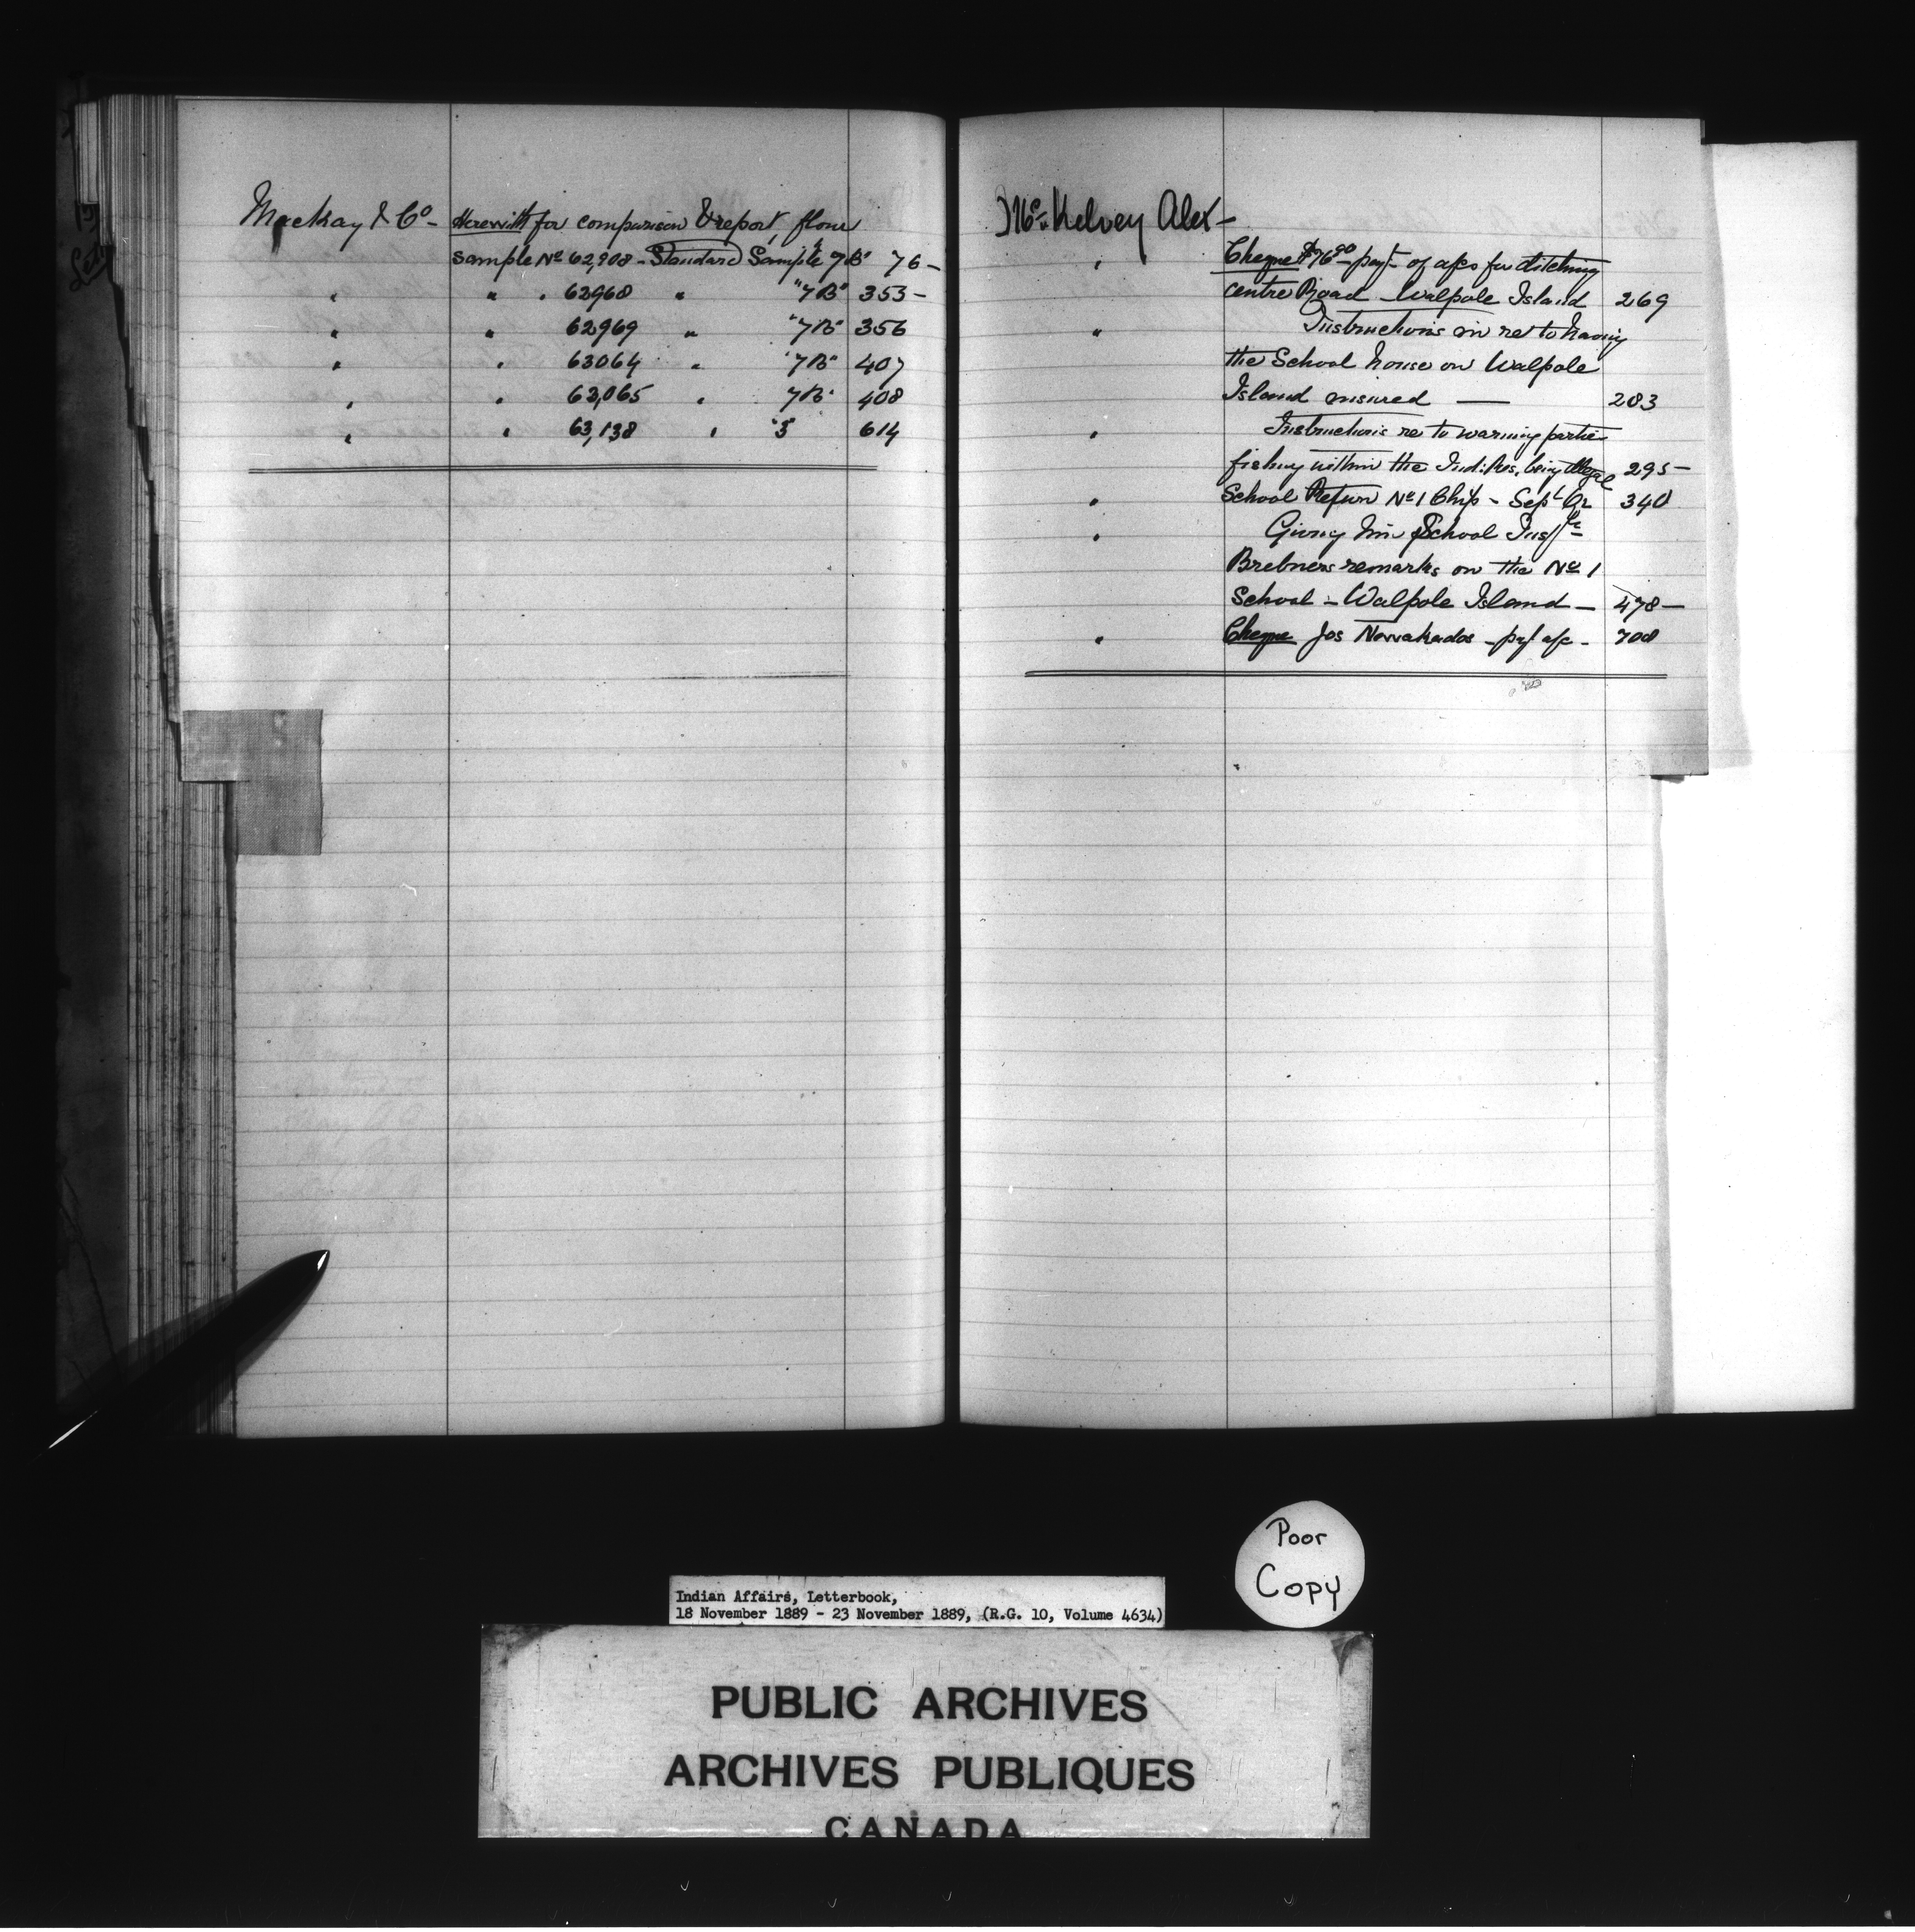 Mackay & Co - Herewith for comparison & report, flour
sample No 62,908 - Standard Sample "7B" 76 -
" " " 62968 " "7B" 353 -
" " 62969 " "7B" 356
" " 63064 " "7B" 407
" " 63,065 " 7B" 408
" " 63,138 " "3" 614
McKelvey Alex -
" Cheque $76.90 - payt of a/cs for ditching
centre Road - Walpole Island 269
" Instructions in re to having
the School house on Walpole
Island insured — 283
" Instructions re to warning parties
fishing within the Ind. Res. being illegal 295 -
" School Return No 1 Chip - Sept Qr 340
" Giving him School Inspr
Brebners remarks on the No 1
School - Walpole Island - 478 -
" Cheque Jos - pay a/c - 708
Poor
Copy
Indian Affairs, Letterbook,
18 November 1889 - 23 November 1889, (R.G. 10, Volume 4634)
PUBLIC ARCHIVES
ARCHIVES PUBLIQUES
CANADA